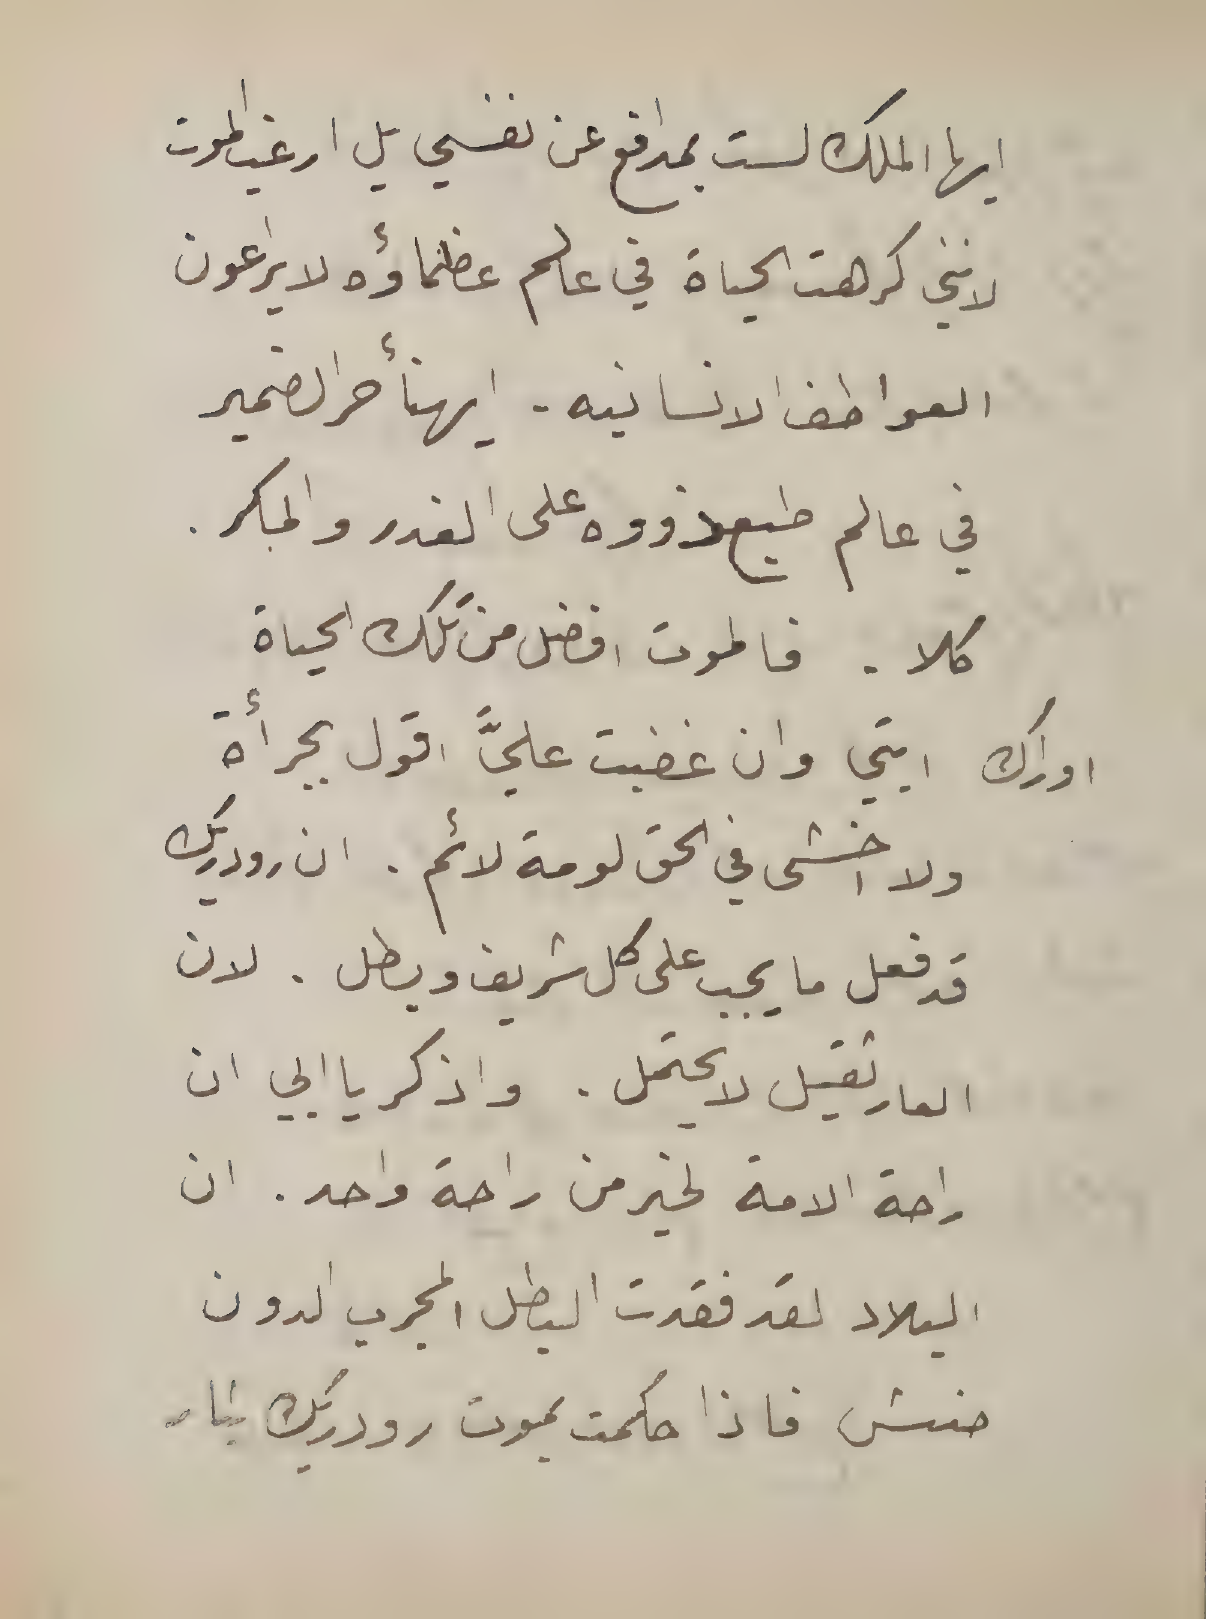 ايها الملك لست بمدافع عن نفسي بل ارغب الموت
لانني كرهت الحياة في عالم عظماؤه لا يراعون
العواطف الانسانيه - ايهنأ حر الضمير
في عالم طبع ذووه على الغدر والمكر .
كلا . فالموت افضل من تلك الحياة
اوراك ابتي وان غضبت عليَّ اقول بجرأة
ولا اخشى في الحق لومة لائم . ان رودريك
قد فعل ما يجب على كل شريف وبطل . لان
العار ثقيل لا يحتمل . واذكر يا ابي ان
راحة الامة لخير من راحة واحد . ان
البلاد لقد فقدت البطل المجرب الدون
صنش فاذا حكمت بموت رودريك